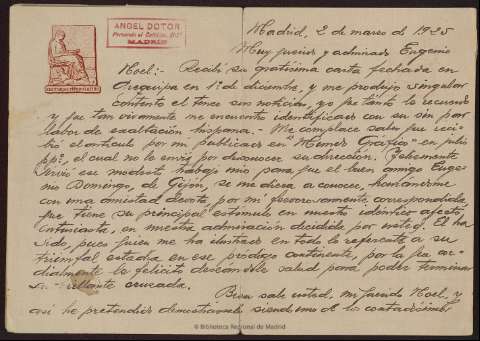 ANGEL DOTOR
Fernando el Católico,
MADRID
Madrid, 2 de marzo de 1925
Muy querido y admirado Eugenio
Noel:- Recibí su gratísima carta fechada en
Arequipa en 1º de diciembre, y me produjo singular
contento el tener sus noticias, yo que tanto le recuerdo
y que tan vivamente me encuentro identificado con su sin par
labor de exaltación hispana.- Me complace saber que reci-
bió el artículo por mi publicado en "Heraldo Gráfico" en julio
ppº, el cual no le envié por desconocer su dirección. Felizmente
sirvió ese modesto trabajo mío para que el buen amigo Euge-
nio Domingo, de Gijón, se me diera a conocer, honrándome
con una amistad devota, por mi fervorosamente correspondida,
que tiene su principal estímulo en nuestro idéntico afecto
entusiasta, en nuestra admiración decidida por usted. Él ha
sido, pues, quien me ha ilustrado en todo lo referente a su
triunfal estadía en ese prodigo continente, por la que cor-
dialmente le felicito deseándole salud para poder terminar
su brillante cruzada.
Bien sabe usted, mi querido Noel, y
así he pretendido demostrárselo siendo uno de los contadísimos
© Biblioteca Regional de Madrid